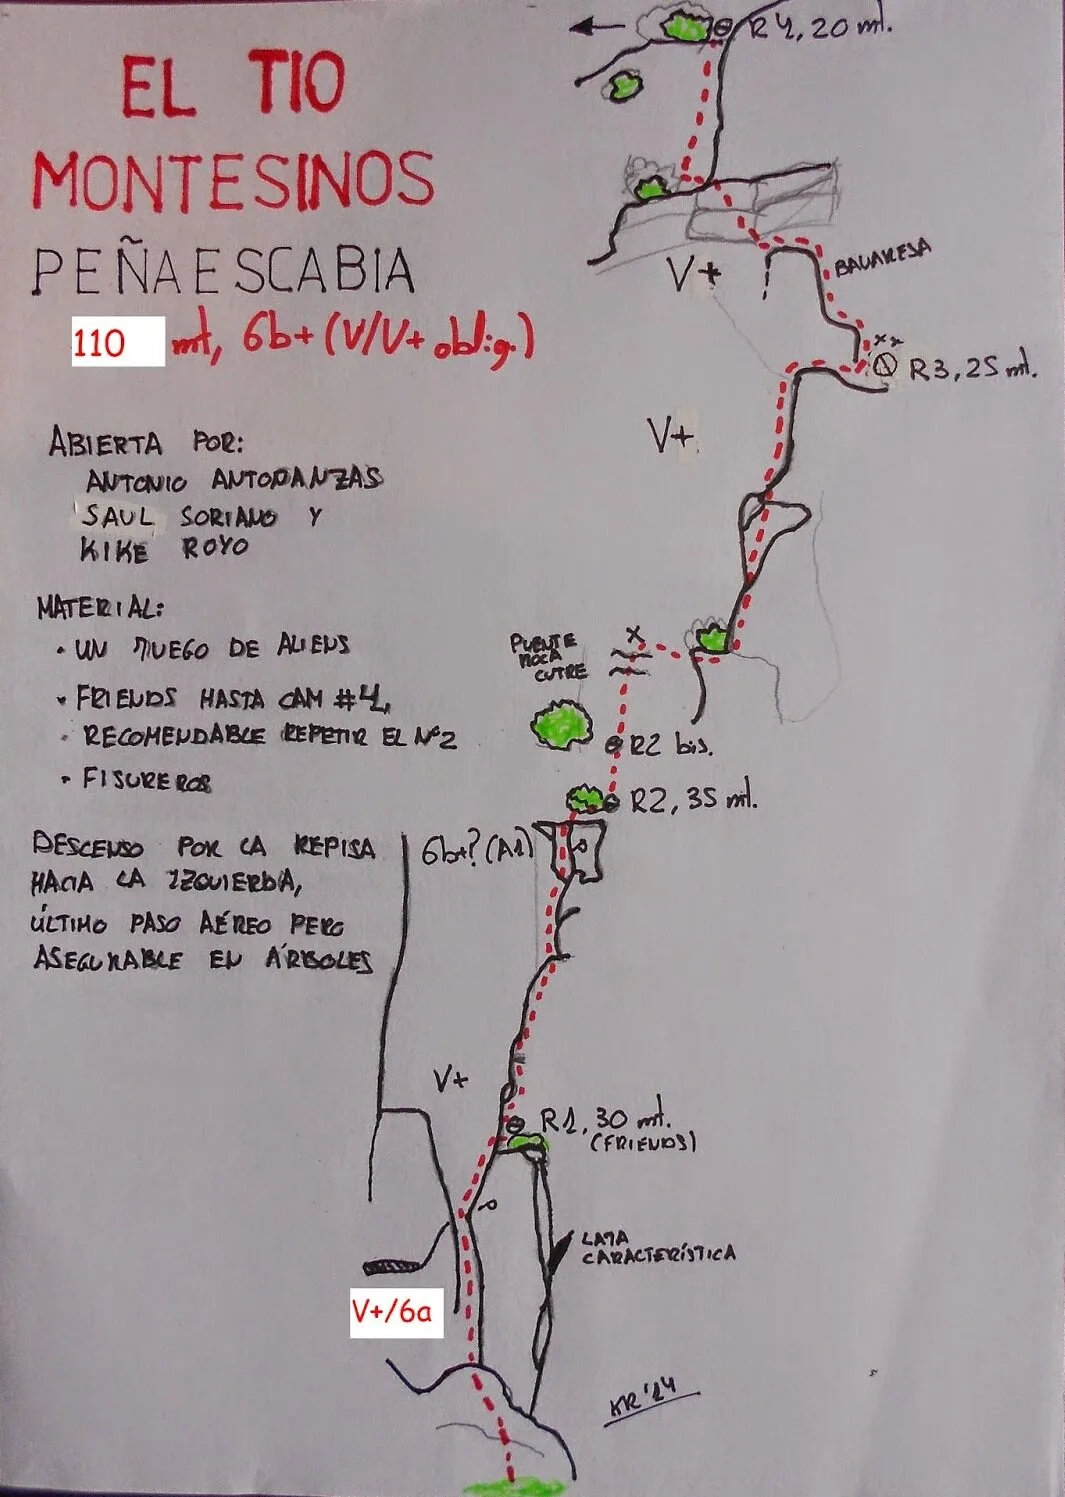 EL TIO
MONTESINOS
PEÑAESCABIA
110 mt, 6b+ (V/V+ oblig.)
ABIERTA POR:
ANTONIO ANTOÑANZAS
SAUL SORIANO Y
KIKE ROYO
MATERIAL:
• UN JUEGO DE ALIENS
• FRIENDS HASTA CAM #4,
• RECOMENDABLE REPETIR EL Nº2
• FISUREROS
DESCENSO POR LA REPISA
HACIA LA IZQUIERDA,
ÚLTIMO PASO AÉREO PERO
ASEGURABLE EN ÁRBOLES
R4, 20 mt.
BAVARESA
V+
R3, 25 mt.
V+
PUENTE
ROCA
CUTRE
R2 bis.
R2, 35 mt.
6b+? (A1)
V+
R1, 30 mt.
(FRIENDS)
LAJA
CARACTERÍSTICA
V+/6a
KR'14